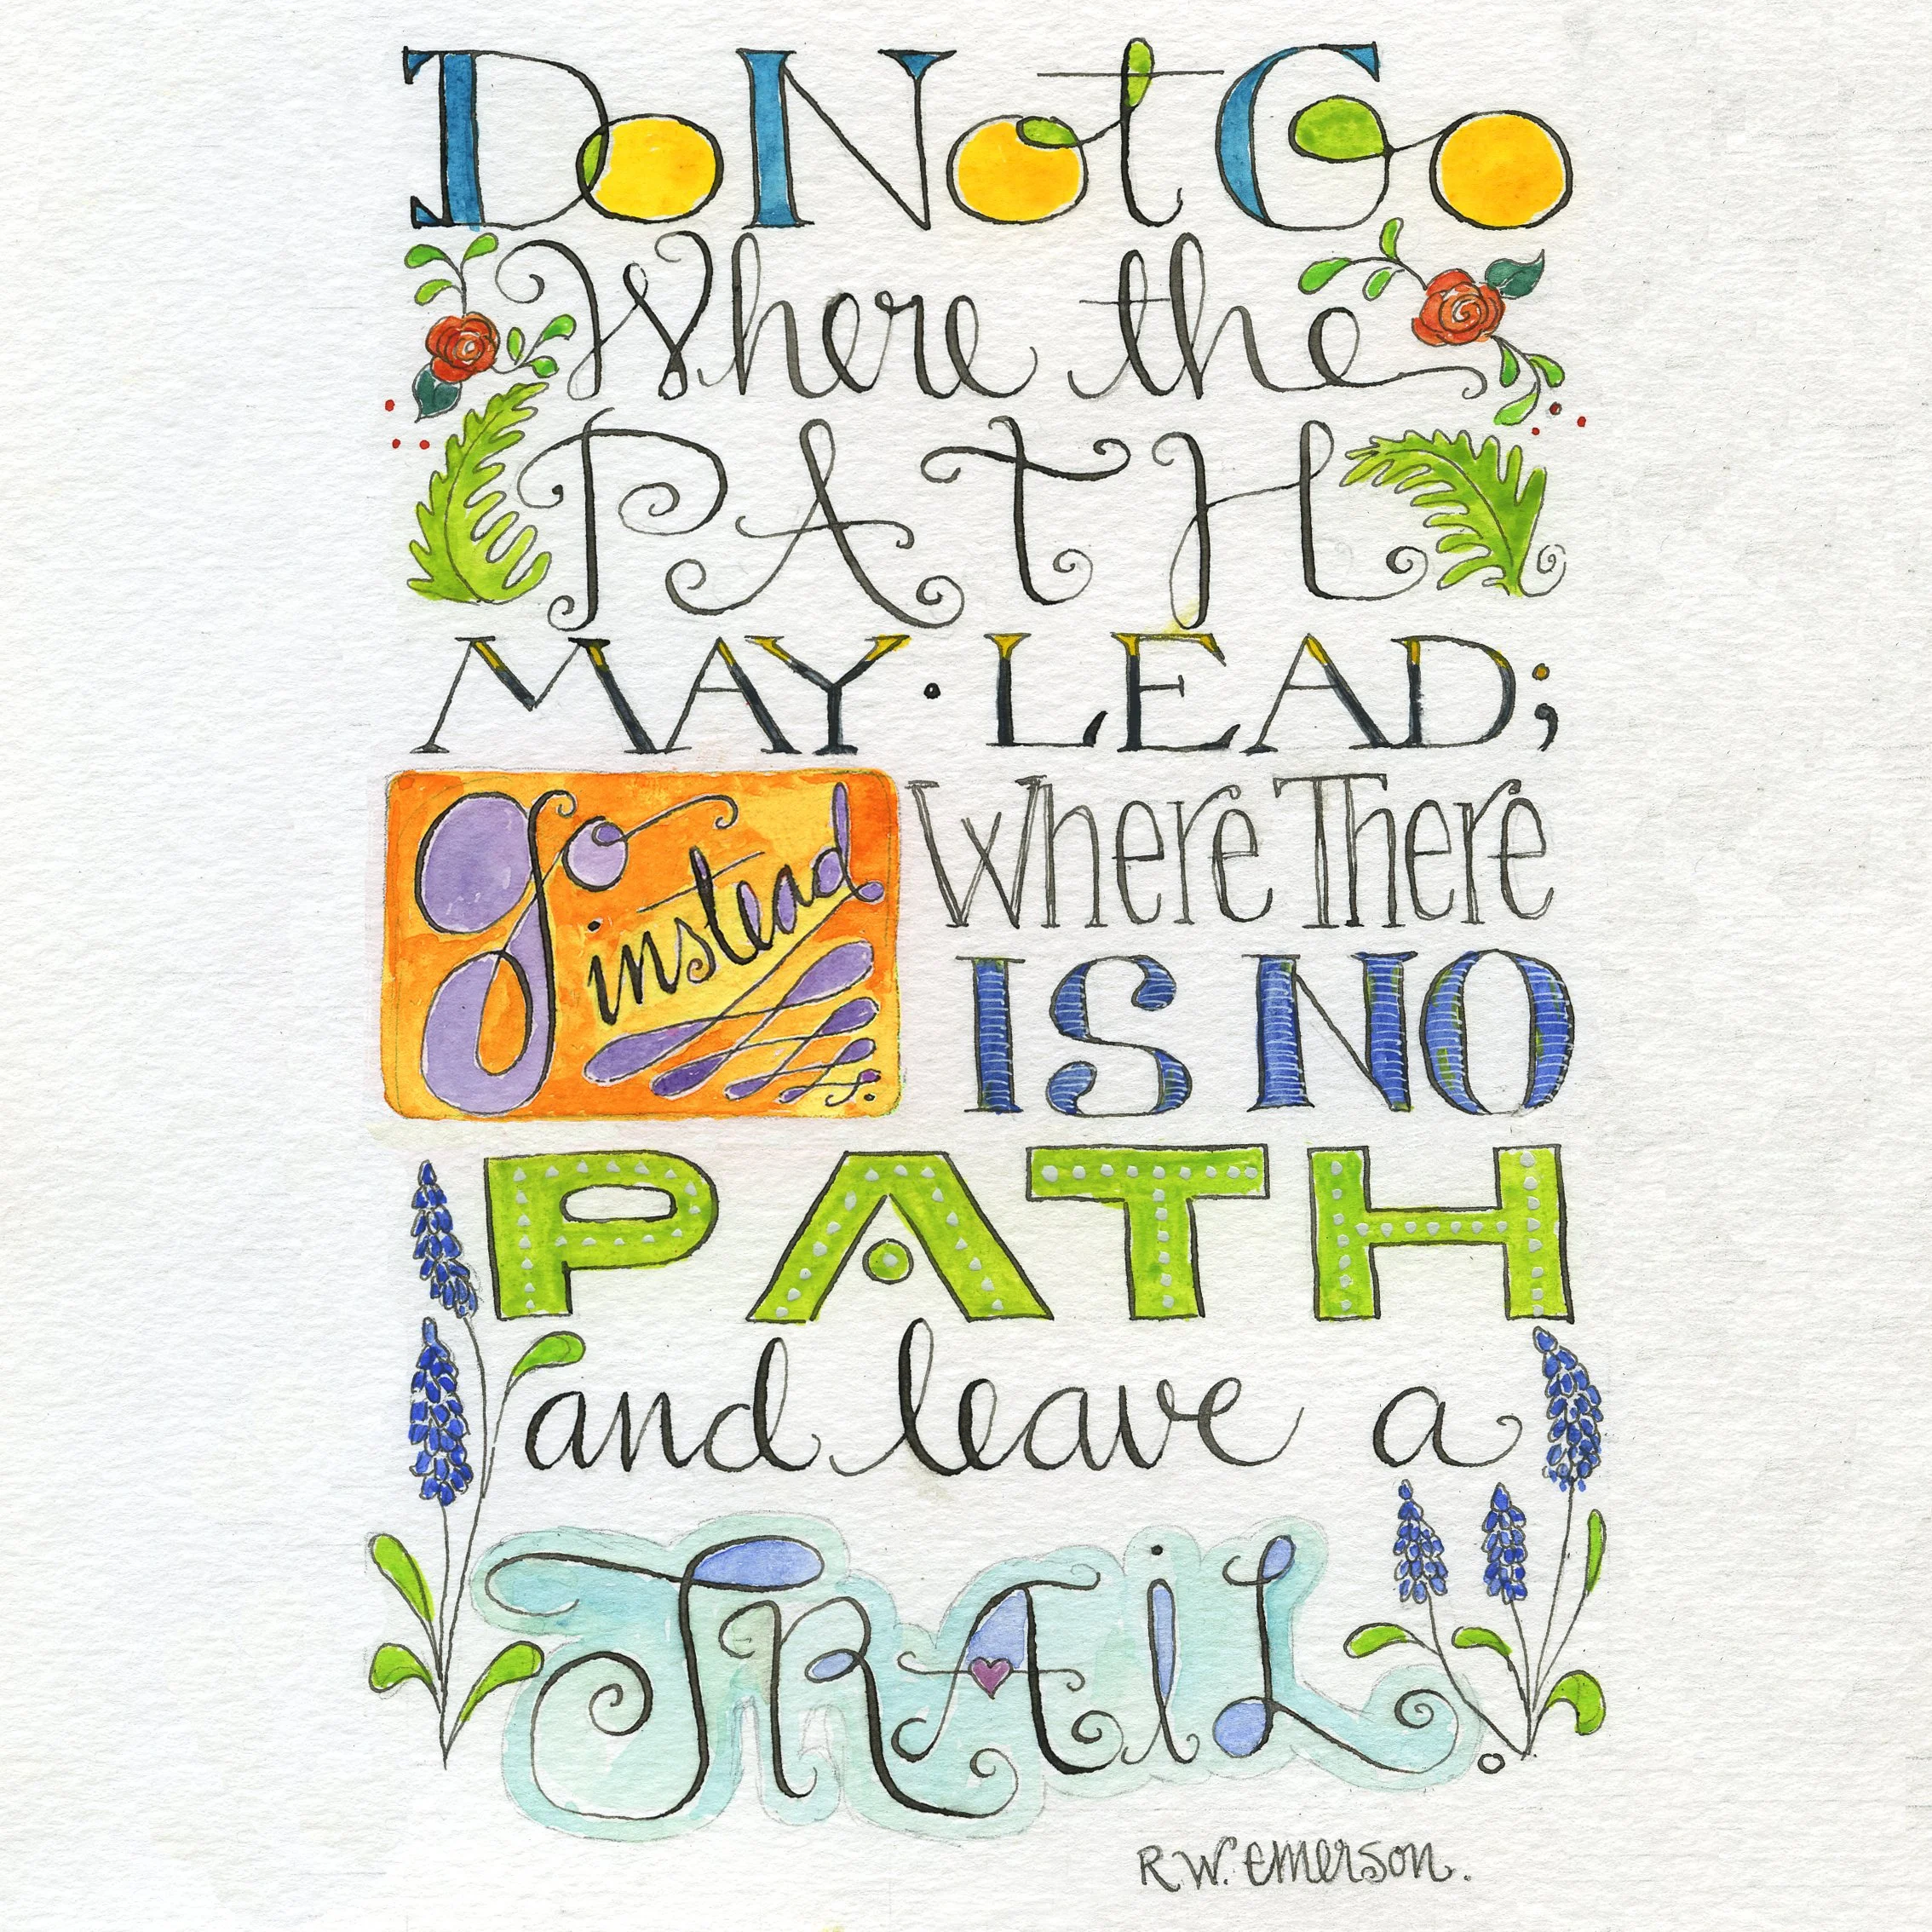 Do Not Go
Where the
PATH
MAY · LEAD;
Go instead
Where There
IS NO
PATH
and leave a
TRAiL.
R.W. Emerson.